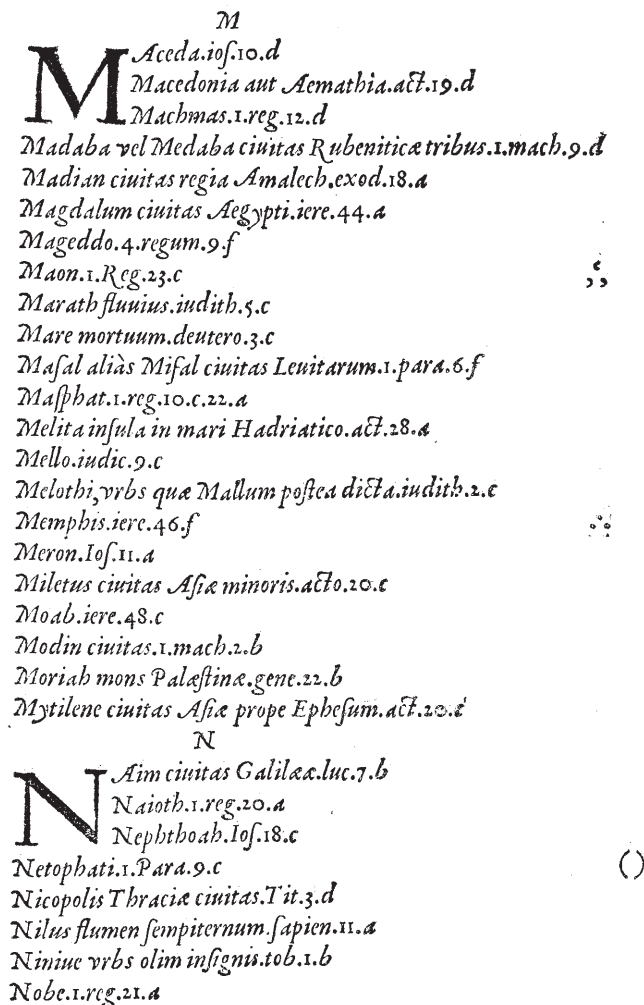 M
MAceda.ioſ.10.d
Macedonia aut Aemathia.act.19.d
Machmas.1.reg.12.d
Madaba vel Medaba ciuitas Rubeniticæ tribus.1.mach.9.d
Madian ciuitas regia Amalech.exod.18.a
Magdalum ciuitas Aegypti.iere.44.a
Mageddo.4.regum.9.f
Maon.1.Reg.23.c
Marath fluuius.iudith.5.c
Mare mortuum.deutero.3.c
Maſal aliàs Miſal ciuitas Leuitarum.1.para.6.f
Maſphat.1.reg.10.c.22.a
Melita inſula in mari Hadriatico.act.28.a
Mello.iudic.9.c
Melothi,vrbs quæ Mallum poſtea dicta.iudith.2.c
Memphis.iere.46.f
Meron.Ioſ.11.a
Miletus ciuitas Aſiæ minoris.acto.20.c
Moab.iere.48.c
Modin ciuitas.1.mach.2.b
Moriah mons Palæſtinæ.gene.22.b
Mytilene ciuitas Aſiæ prope Epheſum.act.20.c
N
NAim ciuitas Galilææ.luc.7.b
Naioth.1.reg.20.a
Nephthoah.Ioſ.18.c
Netophati.1.Para.9.c
Nicopolis Thraciæ ciuitas.Tit.3.d
Nilus flumen ſempiternum.ſapien.11.a
Niniue vrbs olim inſignis.tob.1.b
Nobe.1.reg.21.a